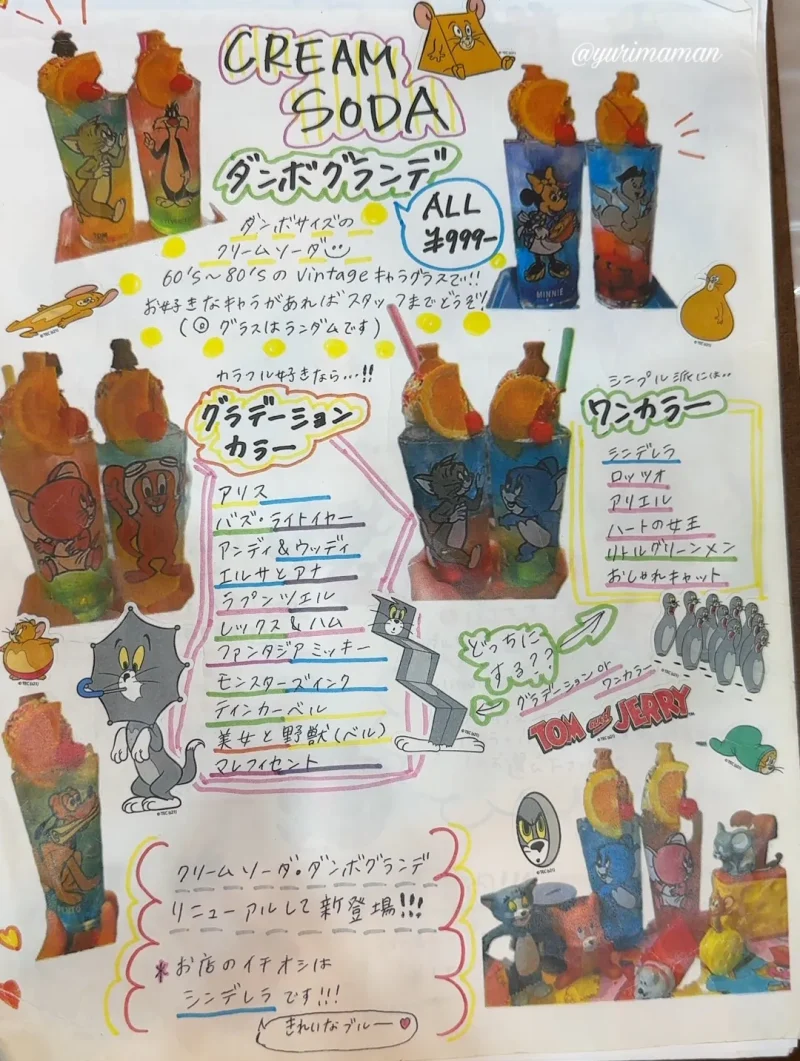 @yurimaman
CREAM
SODA
ダンボグランデ
ALL
¥999-
ダンボサイズの
クリームソーダ
60'S～80'Sの Vintageキャラグラスで!!
お好きなキャラがあればスタッフまでどうぞ!
(◎グラスはランダムです)
カラフル好きなら…!!
グラデーション
カラー
アリス
バズ・ライトイヤー
アンディ&ウッディ
エルサとアナ
ラプンツェル
レックス&ハム
ファンタジアミッキー
モンスターズインク
ティンカーベル
美女と野獣(ベル)
マレフィセント
シンプル派には..
ワンカラー
シンデレラ
ロッツオ
アリエル
ハートの女王
リトルグリーンメン
おしゃれキャット
どっちに
する??
グラデーション or
ワンカラー
TOM and JERRY
クリームソーダ・ダンボグランデ
リニューアルして新登場!!!
*お店のイチオシは
シンデレラです!!!
きれいなブルー♥
TOM
MINNIE
PLUTO